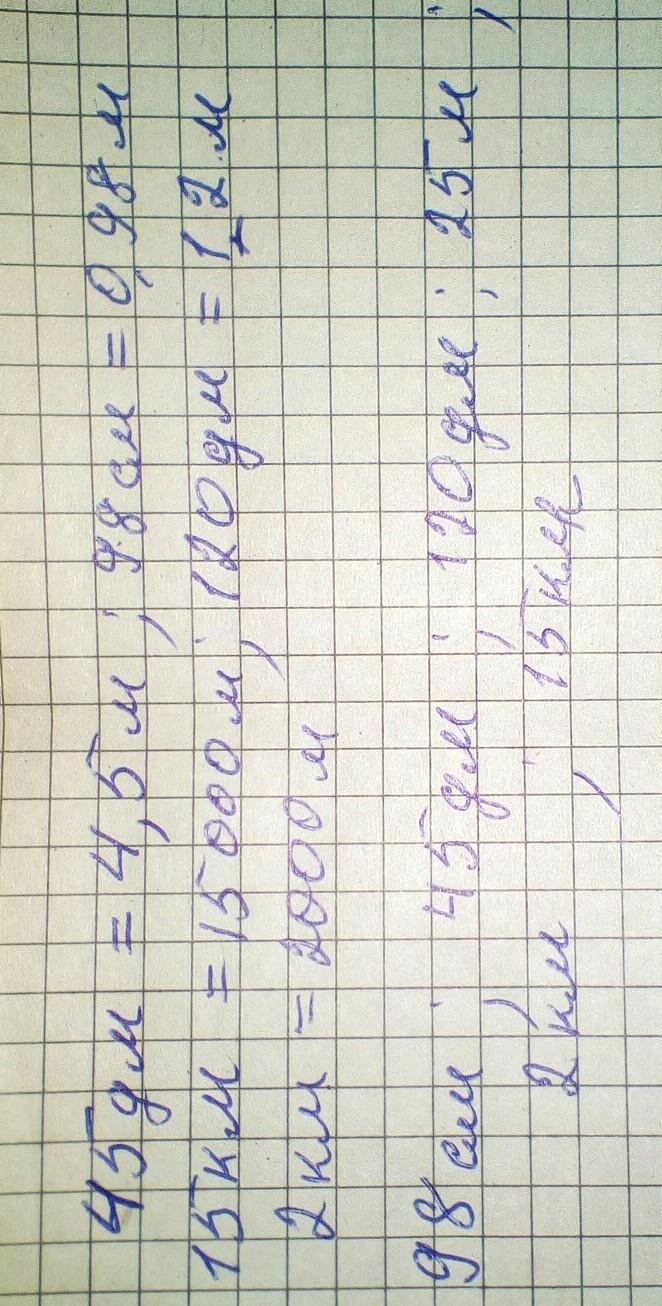 45 дм = 4,5 м; 98 см = 0,98 м
15 км = 15000 м; 120 дм = 12 м
2 км = 2000 м
98 см; 45 дм; 120 дм; 25 м;
2 км; 15 км